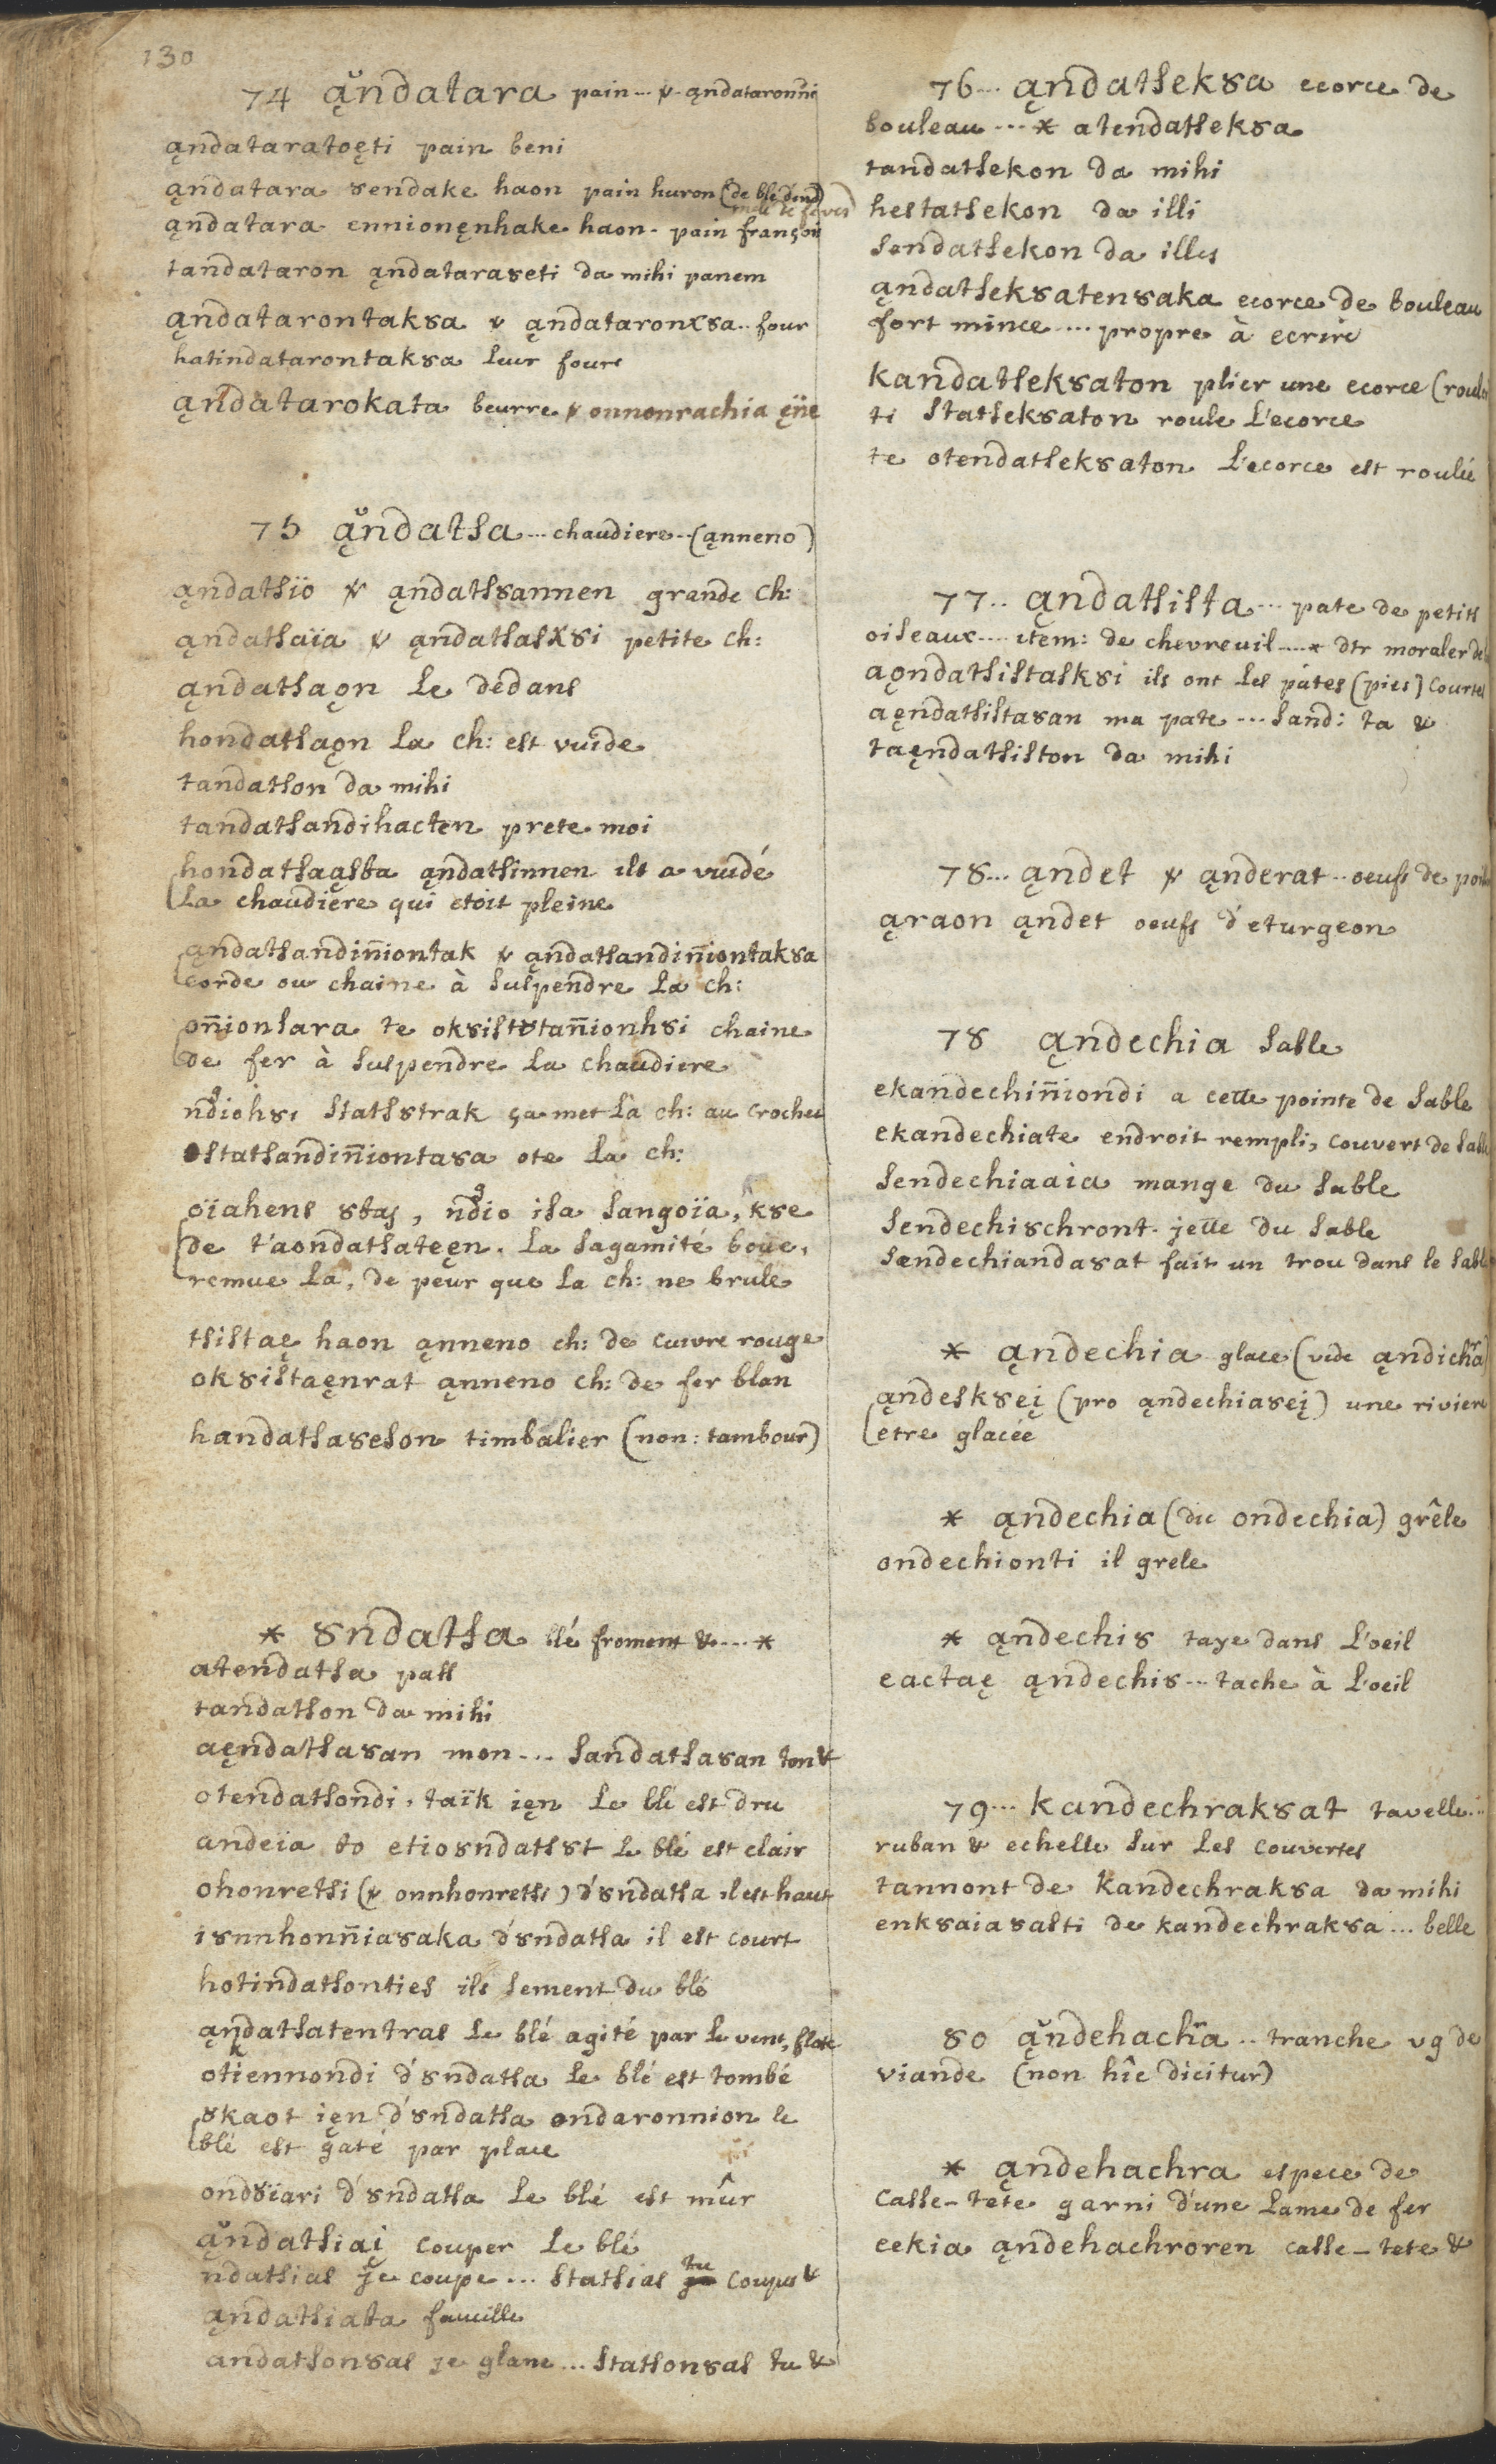 130
74 ąndatara pain... ꝟ ąndataronni
ąndataratoęti pain beni
ąndatara 8endake haon pain huron (de blé d'ind)
mêlé de feves
ąndatara ennionęnhake haon. pain françois
tandataron ąndatara8eti da mihi panem
ąndatarontak8a ꝟ ąndataronx8a.. four
hatindatarontak8a leur four
ąndatarokata beurre ꝟ onnonrachia ęïie
75 ąndatsa... chaudiere..(ąnneno)
ąndatsïo ꝟ ąndats8annen grande ch:
ąndatsaïa ꝟ ąndatsask8i petite ch:
ąndatsaǫn le dedans
hondatsaǫn la ch: est vuide
tandatson da mihi
tandatsandihacten prete moi
hondatsaąsta ąndatsinnen ils a vuidé
la chaudiere qui etoit pleine
ąndatsandiñiontak ꝟ ąndatsandiñiontak8a
corde ou chaine à suspendre la ch:
oñionsara te ok8ist8tañionh8i chaine
de fer à suspendre la chaudiere
ndioh8i stats8trak ça met la ch: au crochet
statsandiñionta8a ote la ch:
oïahens 8tas, ndio isa sangoïa, k8e
de t'aondatsateęn. la sagamité boue,
remue la, de peur que la ch: ne brule
tsistaę haon ąnneno ch: de cuivre rouge
ok8istaęnrat ąnneno ch: de fer blan
handatsa8eson timbalier (non: tambour)
* 8ndatsa blé froment &... *
atendatsa pass
tandatson da mihi
aęndatsa8an mon... sandatsa8an ton &
otendatsondi. taïk ięn le blé est dru
andeïa to etio8ndats8t le blé est clair
ohonretsi (ꝟ onnhonretsi) d'8ndatsa il est haut
i8nnhonñia8aka d'8ndatsa il est court
hotindatsonties ils sement du blé
ąndatsatentras le blé agité par le vent, flote
otkiennondi d'8ndatsa le blé est tombé
8kaot ięn d'8ndatsa ondaronnion le
blé est gaté par place
ond8ïari d'8ndatsa le blé est mûr
ąndatsiaį couper le blé
ndatsias je coupe... statsias tu coupes &
ąndatsiata faucille
andatson8as je glane... statson8as tu &
76... ąndatsek8a ecorce de
bouleau... * atendatsek8a
tandatsekon da mihi
hestatsekon da illi
sendatsekon da illis
ąndatsek8aten8aka ecorce de bouleau
fort mince.... propre à ecrire
kandatsek8aton plier une ecorce (rouler
ti statsek8aton roule l'ecorce
te otendatsek8aton l'ecorce est roulée
77.. ąndatsista... pate de petits
oiseaux.... item: de chevreuil....* dtr moraler de
aǫndatsistask8i ils ont les pâtes (piés) courtes
aęndatsista8an ma pate... sand: ta &
taęndatsiston da mihi
78... ąndet ꝟ ąnderat.. oeufs de pois
ąraon ąndet oeufs d'eturgeon
78 ąndechia sable
ekandechiñiondi a cette pointe de sable
ekandechiate endroit rempli, couvert de sable
sendechiaaia mange du sable
sendechischront. jette du sable
sendechianda8at fait un trou dans le sable
* ąndechia glace (vide ąndichra)
ąndesk8eį (pro ąndechia8eį) une riviere
etre glacée
* ąndechia (dic ondechia) grêle
ondechionti il grele
* ąndechi8 taye dans l'oeil
eactaę ąndechi8... tache à l'oeil
79... kandechrak8at tavelle...
ruban & echelle sur les couvertes
tannont de kandechrak8a da mihi
enk8aia8asti de kandechrak8a... belle
80 ąndehachra.. tranche vg de
viande (non hîc dicitur)
* ąndehachra espece de
casse-tete garni d'une lame de fer
eekia ąndehachroren casse-tete &